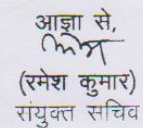 आज्ञा से,
(रमेश कुमार)
संयुक्त सचिव